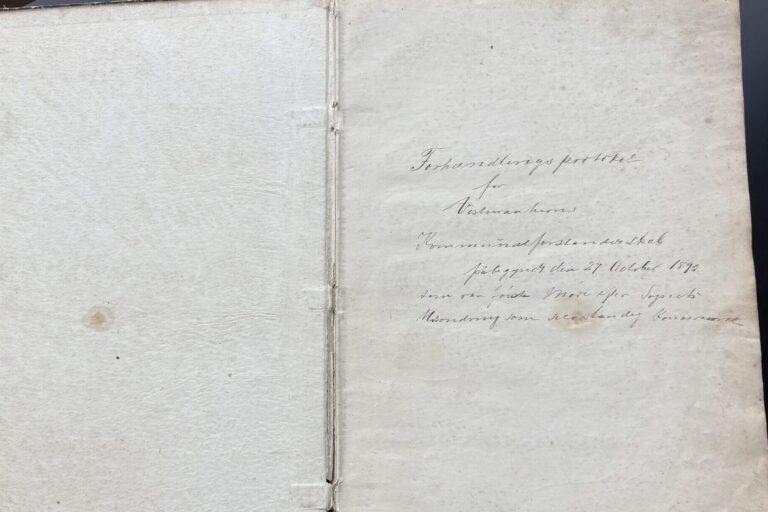 Forhandlingsprotokol
for
Vestmanhavns
Kommunalforstanderskab
påbegyndt den 27 October 1892
som var første Møde efter Sognets
Udsondring som selvstændig Kommune